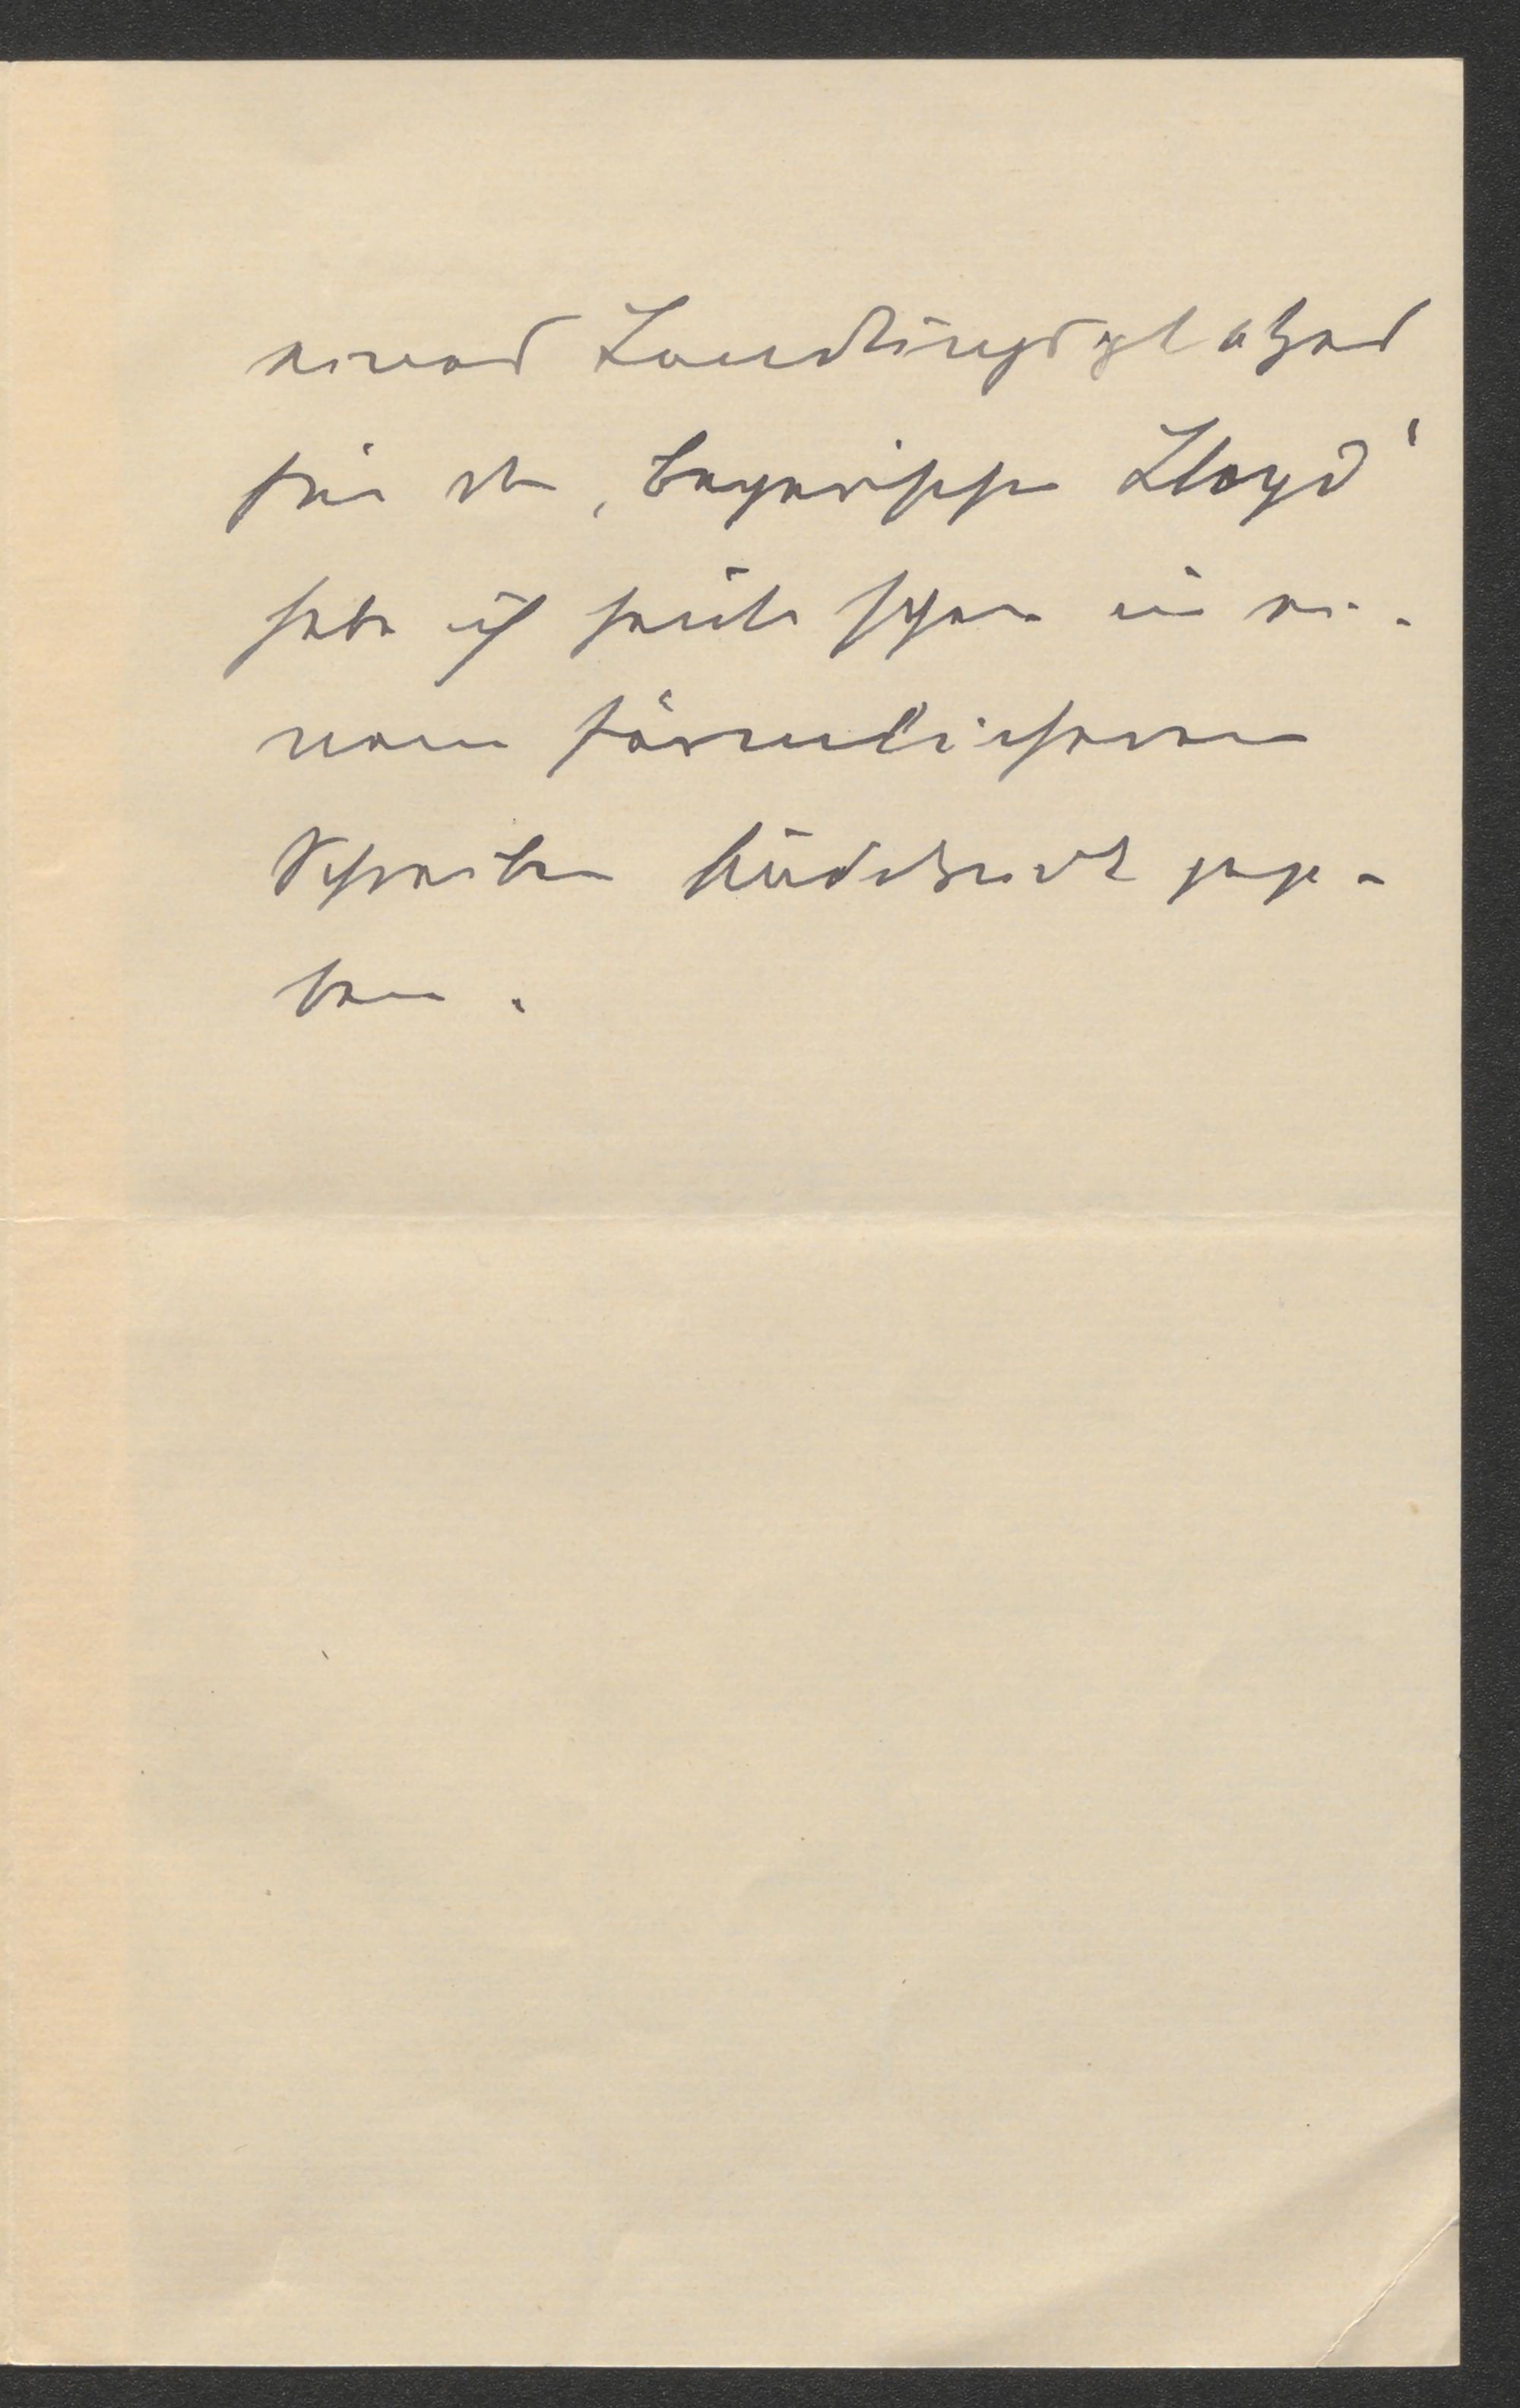 eines Landungsplatzes
für den „Bayerischen Lloyd“
habe ich heute schon in ei-
nem förmlicheren
Schreiben Ausdruck gege-
ben.